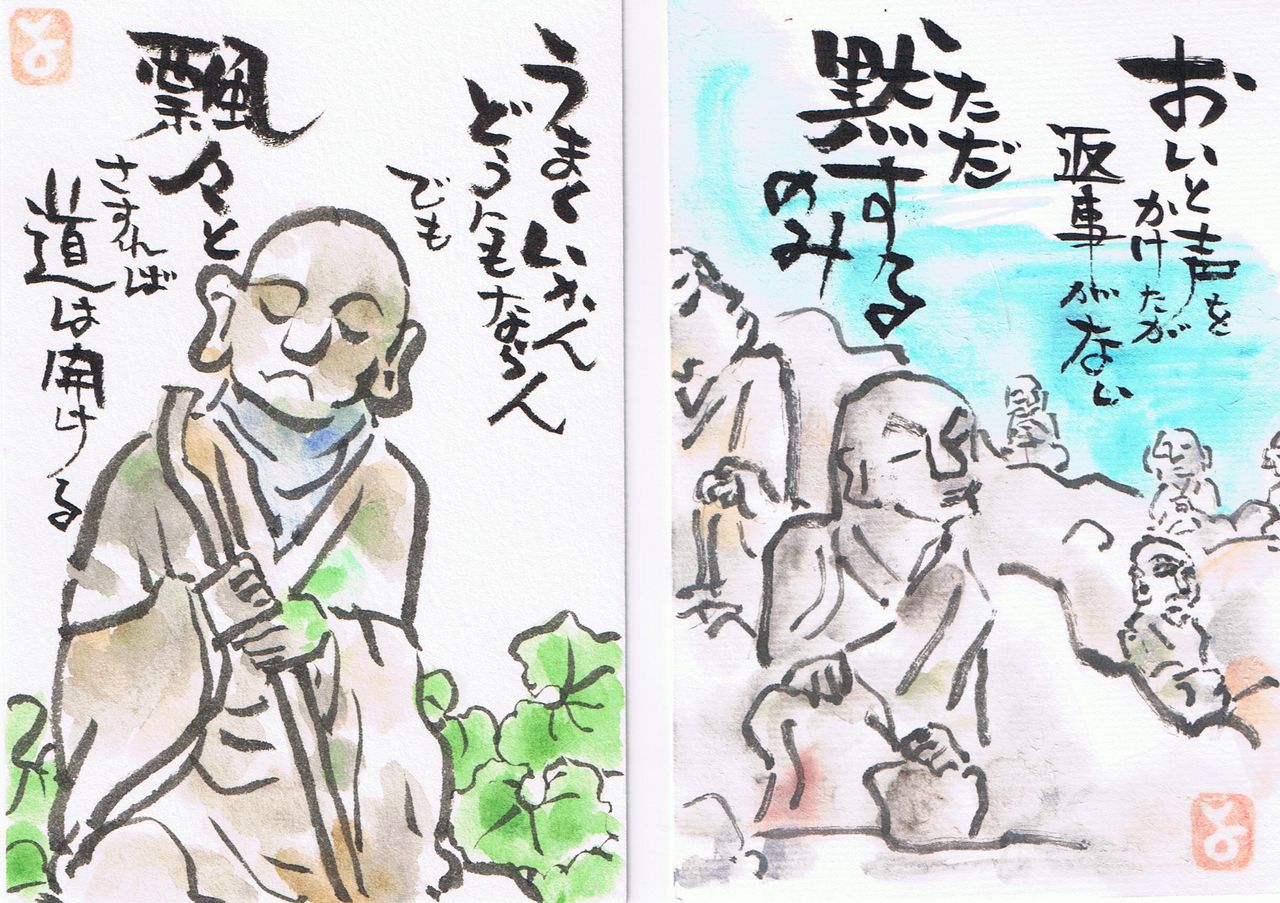 おいと声を
かけたが
返事がない
ただ
黙する
のみ
うまくいかん
どうにもならん
でも
飄々と
さすれば
道は開ける